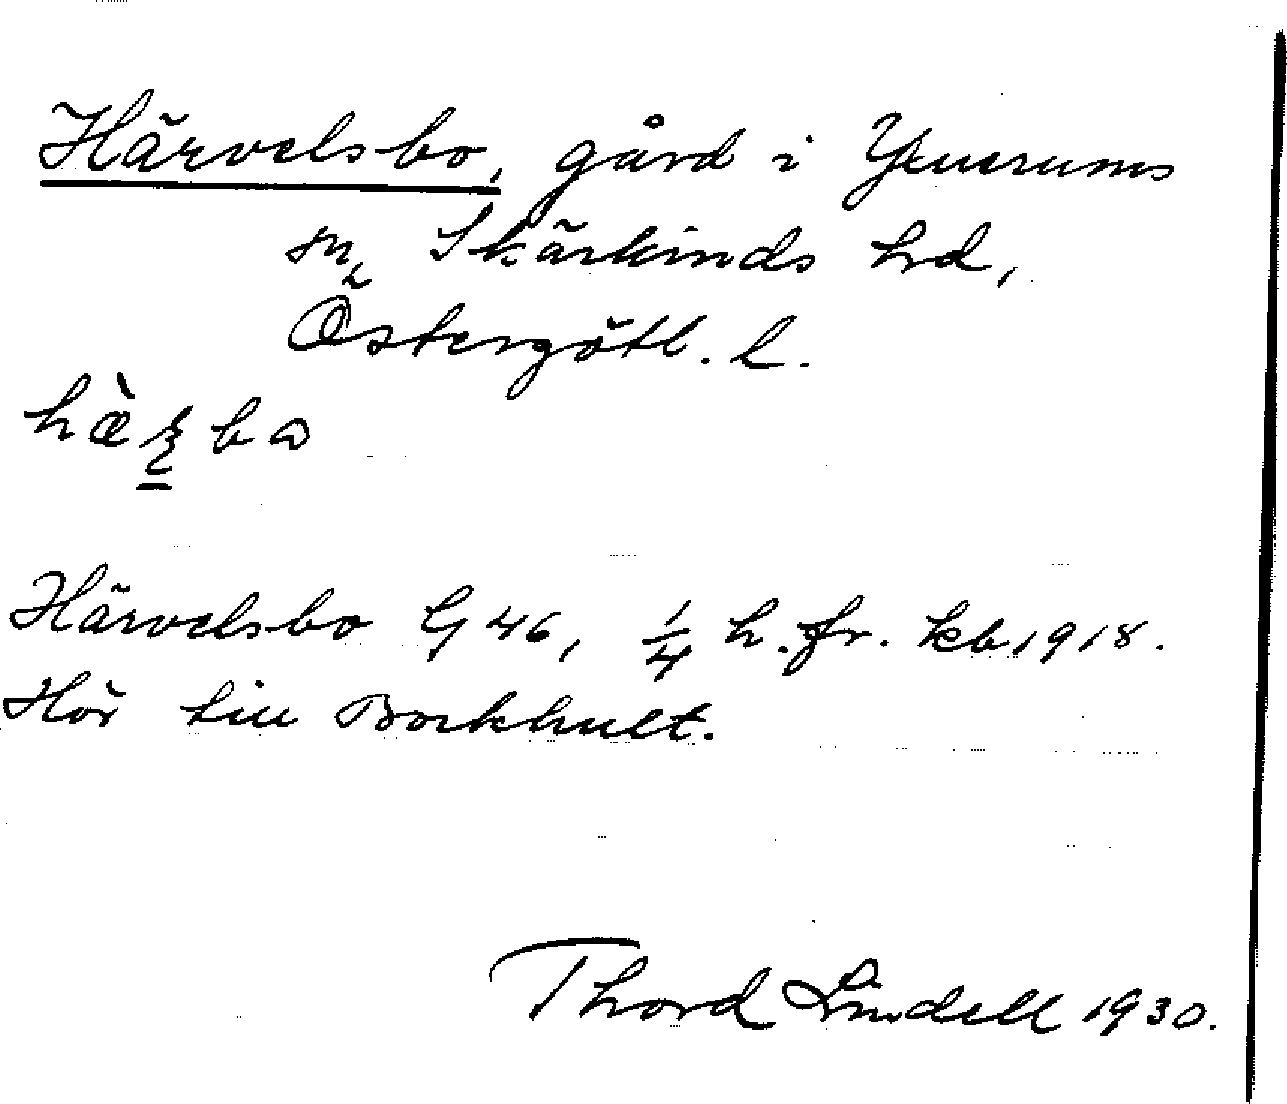 Härvelsbo, gård i Yxnerums
sn, Skärkinds hrd,
Östergötl. l.
Härvelsbo G 46, 1/4 h. fr. kb. 1918.
Hör till Borkhult.
Thord Lindell 1930.